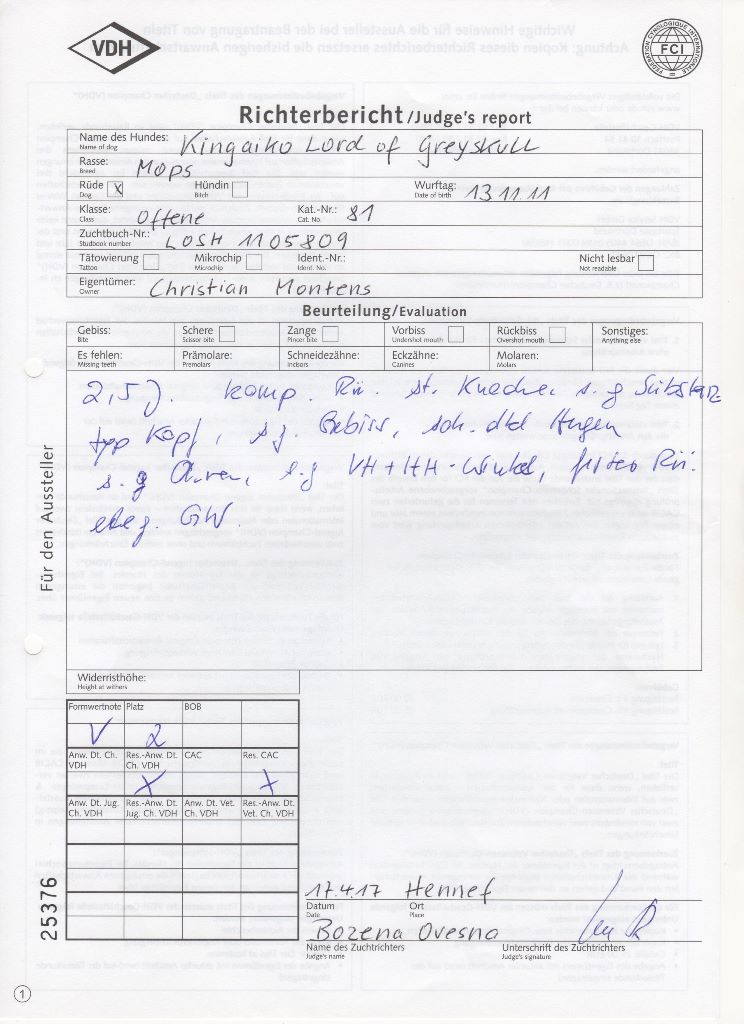 VDH
FEDERATION CYNOLOGIQUE INTERNATIONALE
FCI
Richterbericht/Judge's report
Name des Hundes: Kingaiko Lord of Greyskull
Name of dog
Rasse: Mops
Breed
Rüde x Hündin Wurftag: 13 11.11
Dog Bitch Date of birth
Klasse: Offene Kat.-Nr.: 81
Class Cat. No.
Zuchtbuch-Nr.: LOSH 1105809
Studbook number
Tätowierung Mikrochip Ident.-Nr.: Nicht lesbar
Tattoo Microchip Ident. No. Not readable
Eigentümer: Christian Montens
Owner
Beurteilung/Evaluation
Gebiss: Schere Zange Vorbiss Rückbiss Sonstiges:
Bite Scissor bite Pincer bite Undershot mouth Overshot mouth Anything else
Es fehlen: Prämolare: Schneidezähne: Eckzähne: Molaren:
Missing teeth Premolars Incisors Canines Molars
2,5 J. komp. Rü. st. Knochen s. g Substanz
typ Kopf, s g. Gebiss, sch. dkl Augen
s. g Ohren, s.g VH + HH - Winkel, Rü.
GW.
Für den Aussteller
Widerristhöhe:
Height at withers
Formwertnote Platz BOB
V 2
Anw. Dt. Ch. VDH Res.-Anw. Dt. Ch. VDH CAC Res. CAC
X X
Anw. Dt. Jug. Ch. VDH Res.-Anw. Dt. Jug. Ch. VDH Anw. Dt. Vet. Ch. VDH Res.-Anw. Dt. Vet. Ch. VDH
25376
17.4.17 Hennef
Datum Ort
Date Place
Bozena Ovesna
Name des Zuchtrichters Unterschrift des Zuchtrichters
Judge's name Judge's signature
1